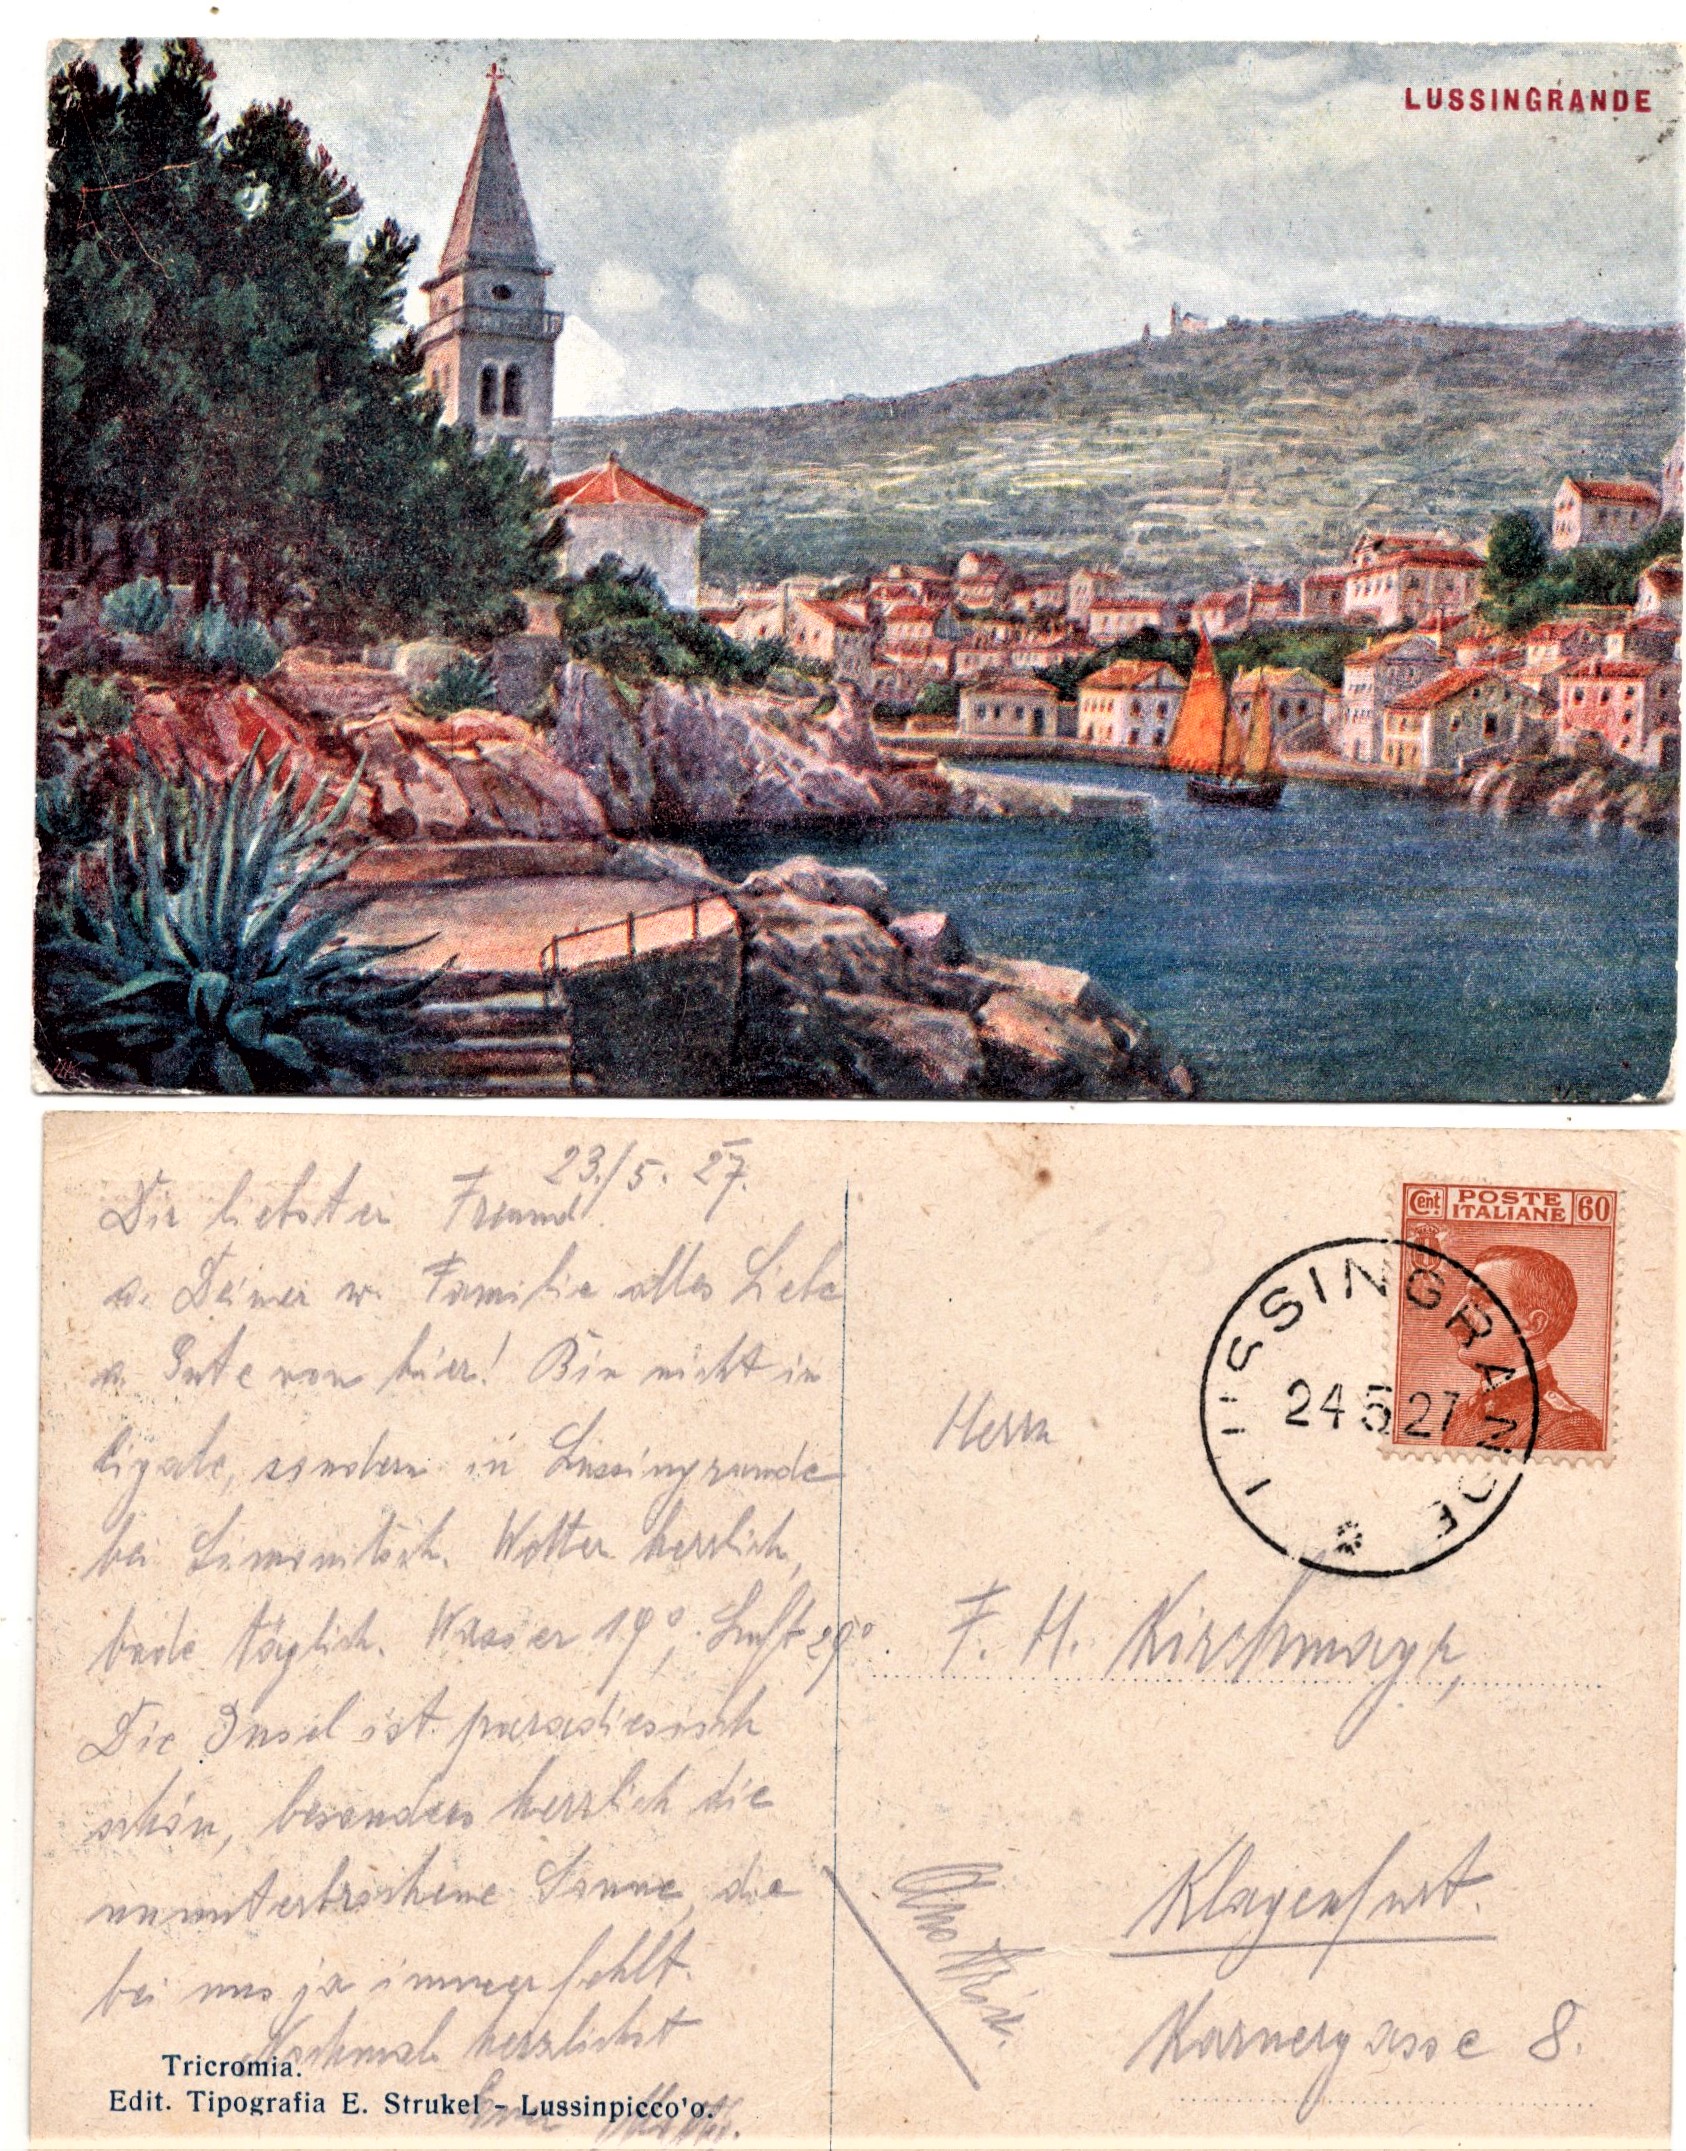 LUSSINGRANDE
23./5. 27.
Dir liebster Freund
u. Deiner w. Familie alles Liebe
u. Gute von hier! Bin nicht in
Cigale, sondern in Lussingrande
bei Simonitsch. Wetter herrlich,
bade täglich. Wasser 19°, Luft 29°.
Die Insel ist paradiesisch
schön, besonders herrlich die
ununterbrochene Sonne, die
bei uns ja immer fehlt.
Nochmals herzlichst
Tricromia.
Edit. Tipografia E. Strukel - Lussinpicco'o.
Cent. POSTE ITALIANE 60
LUSSINGRANDE
24 5 27
Herrn
F. H. Kirchmayr,
Klagenfurt.
Karnergasse 8.